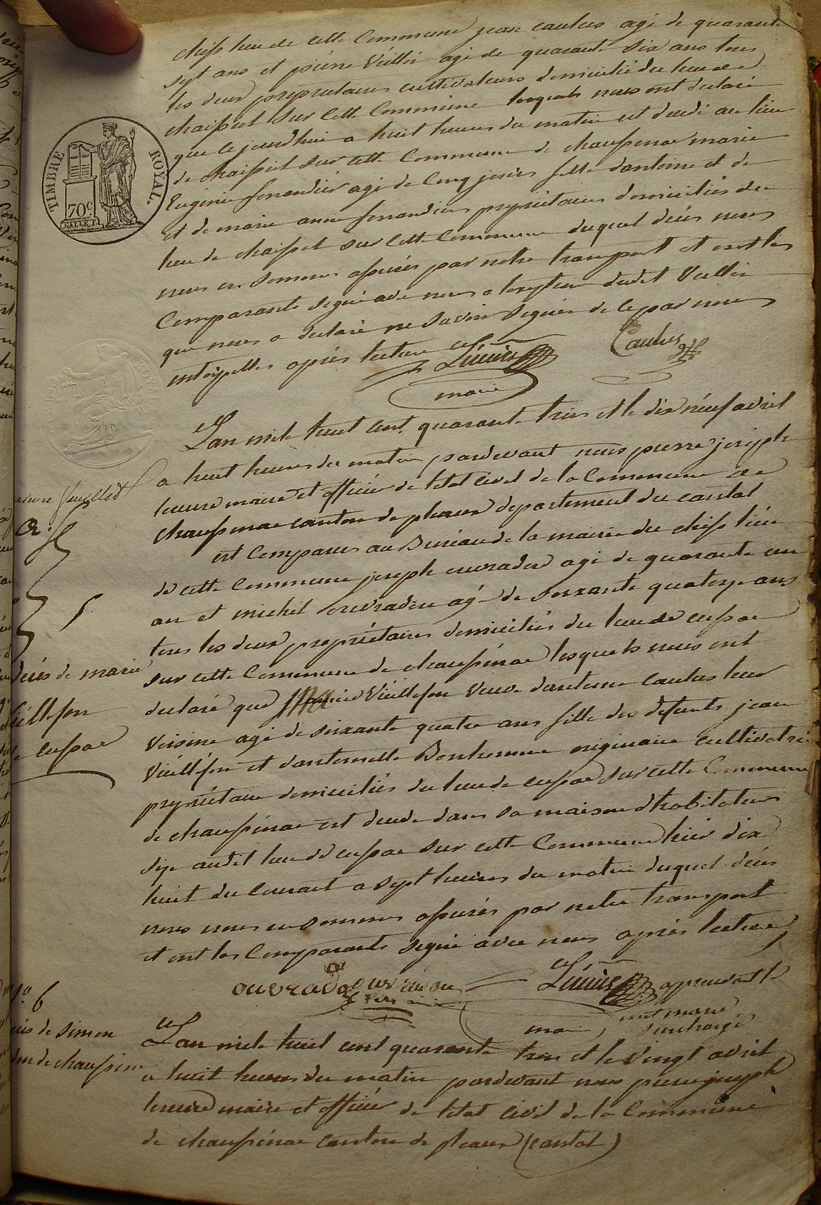 chef lieu de cette Commune jean caulus agé de quarante
sept ans et pierre Vieille agé de quarante six ans tous
les deux propriétaires cultivateurs domiciliés du lieu de
chaisset sur cette Commune lesquels nous ont declaré
que ce jourdhui a huit heures du matin est decedé au lieu
de chaisset sur cette Commune de chaussenac marie
Eugénie agé de cinq jours fille dantoine et de
et de marie anne propriétaires domiciliés du
lieu de chaisset sur cette Commune duquel décès nous
nous en sommes assurés par notre transport et ont les
Comparants signé avec nous a lexception dudit
qui nous a declaré ne savoir signer de ce par nous
interpellés après lecture
Caulus
maire
TIMBRE ROYAL
70c
Lan mile huit cent quarante trois et le dix neuf avril
a huit heures du matin pardevant nous pierre joseph
maire et officier de letat civil de la Commune de
chaussenac canton de pleaux departement du cantal
est Comparus au Bureau de la mairie du chef lieu
de cette Commune joseph ouvradou agé de quarante un
an et michel ouvradou agé de soixante quatorze ans
tous les deux propriétaires domiciliés du lieu de
sur cette Commune de chaussenac lesquels nous ont
declaré que marie Vieillefon Veuve dantoine caulus leur
voisine agé de soixante quatre ans fille des défunts jean
Vieillefon et dantoinette Bonhomme originaire cultivatrice
propriétaire domiciliés du lieu de sur cette Commune
de chaussenac est decedé dans sa maison dhabitation
sise audit lieu de sur cette Commune hier dix
huit du Courant a sept heures du matin duquel décès
nous nous en sommes assurés par notre transport
et ont les Comparants signé avec nous après lecture
ouvradou approuvant
maire le mot marie
surchargé
décès de marie
Vieillefon
de
No 6
décès de Simon
de chaussenac
Lan mile huit cent quarante trois et le vingt avril
a huit heures du matin pardevant nous pierre joseph
maire et officier de letat civil de la Commune
de chaussenac canton de pleaux (cantal)